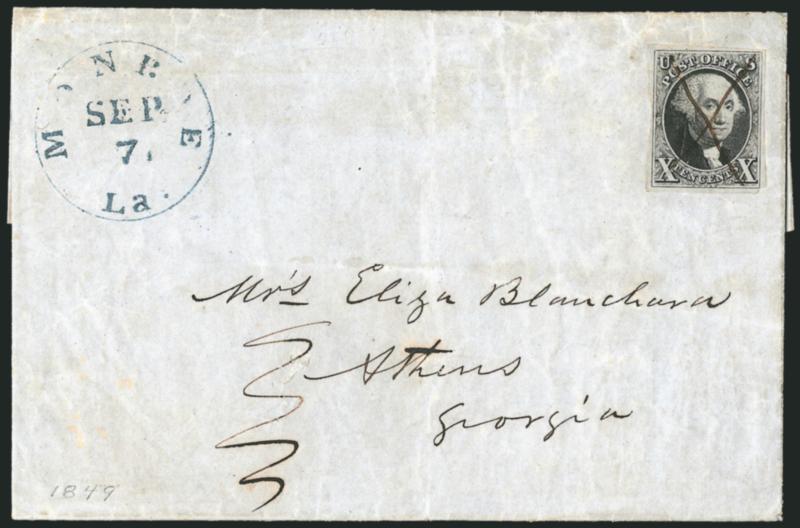 MONROE
SEP
7.
La.
U S
POST OFFICE
X TEN CENTS X
Mrs Eliza Blanchard
Athens
Georgia
1849